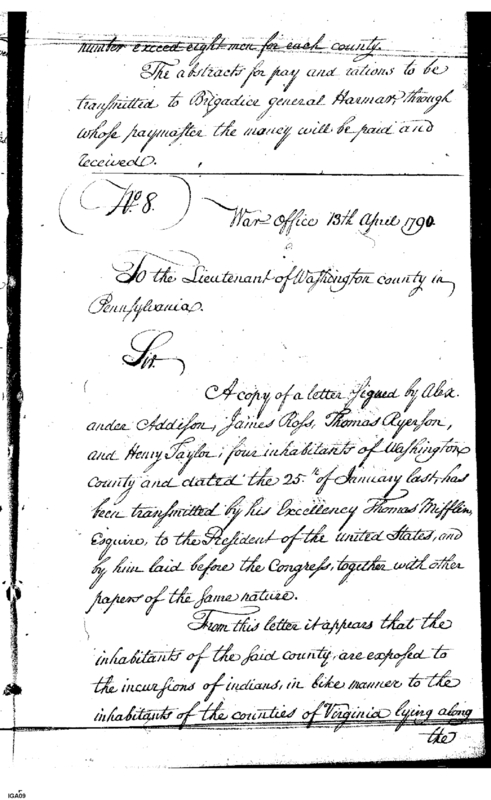 number exceed eight men for each county.
The abstracts for pay and rations to be
transmitted to Brigadier general Harmar, through
whose paymaster the money will be paid and
received.
No. 8.
War Office 13th April 1790
To the Lieutenant of Washington county in
Pennsylvania.
Sir.
A copy of a letter signed by Alex-
ander Addison, James Ross, Thomas Ryerson,
and Henry Taylor, four inhabitants of Washington
county and dated the 25.th of January last, has
been transmitted by his Excellency Thomas Mifflin,
Esquire, to the President of the united States, and
by him laid before the Congress, together with other
papers of the same nature.
From this letter it appears that the
inhabitants of the said county, are exposed to
the incursions of indians, in like manner to the
inhabitants of the counties of Virginia lying along
the
IGA09